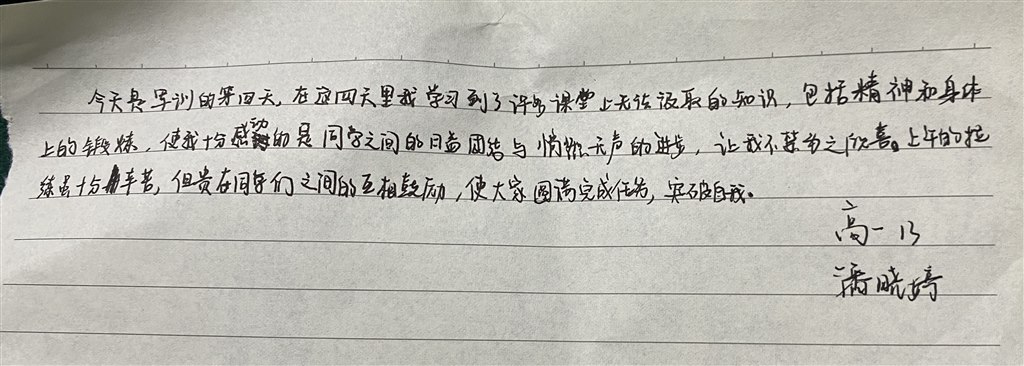 今天是军训的第四天，在这四天里我学习到了许多课堂上无法汲取的知识，包括精神和身体
上的锻炼，使我十分感动的是同学之间的日益团结与悄然无声的进步，让我不禁为之欣喜。上午的拉
练虽十分辛苦，但贵在同学们之间的互相鼓励，使大家圆满完成任务，突破自我。
高一13
潘晓婷